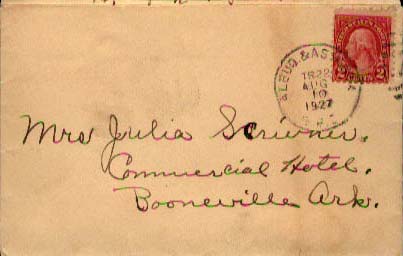 ALBUQ. & AS
TR 22
AUG
10
1927
R.P.O.
2 2
Mrs Julia Scrivner.
Commercial Hotel.
Booneville Ark.